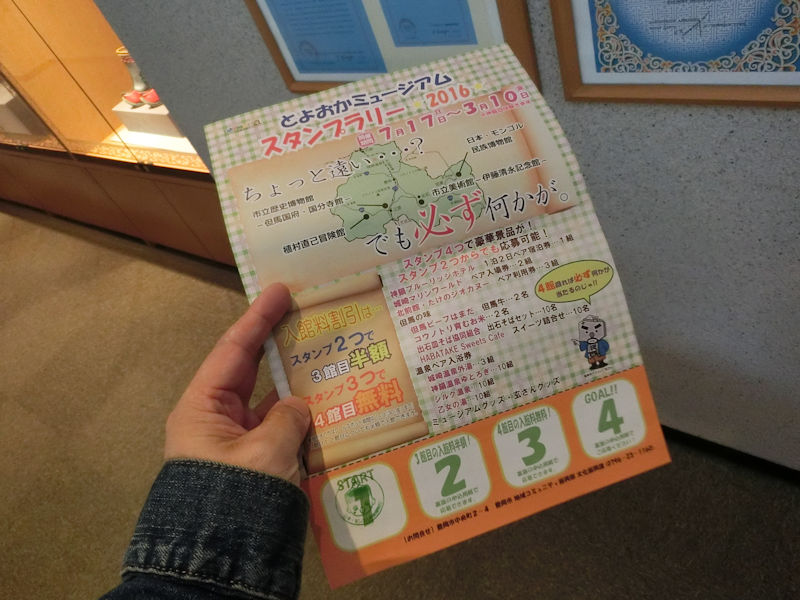 とよおかミュージアム
スタンプラリー 2016
7月17日〜3月10日
ちょっと遠い・・・?
日本・モンゴル
民族博物館
市立歴史博物館
－但馬国府・国分寺館－
市立美術館－伊藤清永記念館－
植村直己冒険館
でも必ず何かが。
スタンプ4つで豪華景品が!
スタンプ2つからでも応募可能!
神鍋ブルーリッジホテル 1泊2日ペア宿泊券…1組
城崎マリンワールド ペア入場券…2組
北前館・たけのジオカヌー ペア利用券…3組
但馬の味
但馬ビーフはまだ 但馬牛…2名
コウノトリ育むお米…2名
出石皿そば協同組合 出石そばセット…10名
HABATAKE Sweets Cafe スイーツ詰合せ…10名
温泉ペア入浴券
城崎温泉外湯…3組
神鍋温泉ゆとろぎ…10組
シルク温泉…10組
乙女の湯…10組
ミュージアムグッズ・玄さんグッズ
4館廻れば必ず何かが
当たるのじゃ!!
入館料割引は…
スタンプ2つで
3館目半額
スタンプ3つで
4館目無料
START
1
3館目の入館料半額!
2
裏面の申込用紙で
応募できます。
4館目の入館料無料!
3
裏面の申込用紙で
応募できます。
GOAL!!
4
裏面の申込用紙で
ご応募ください!